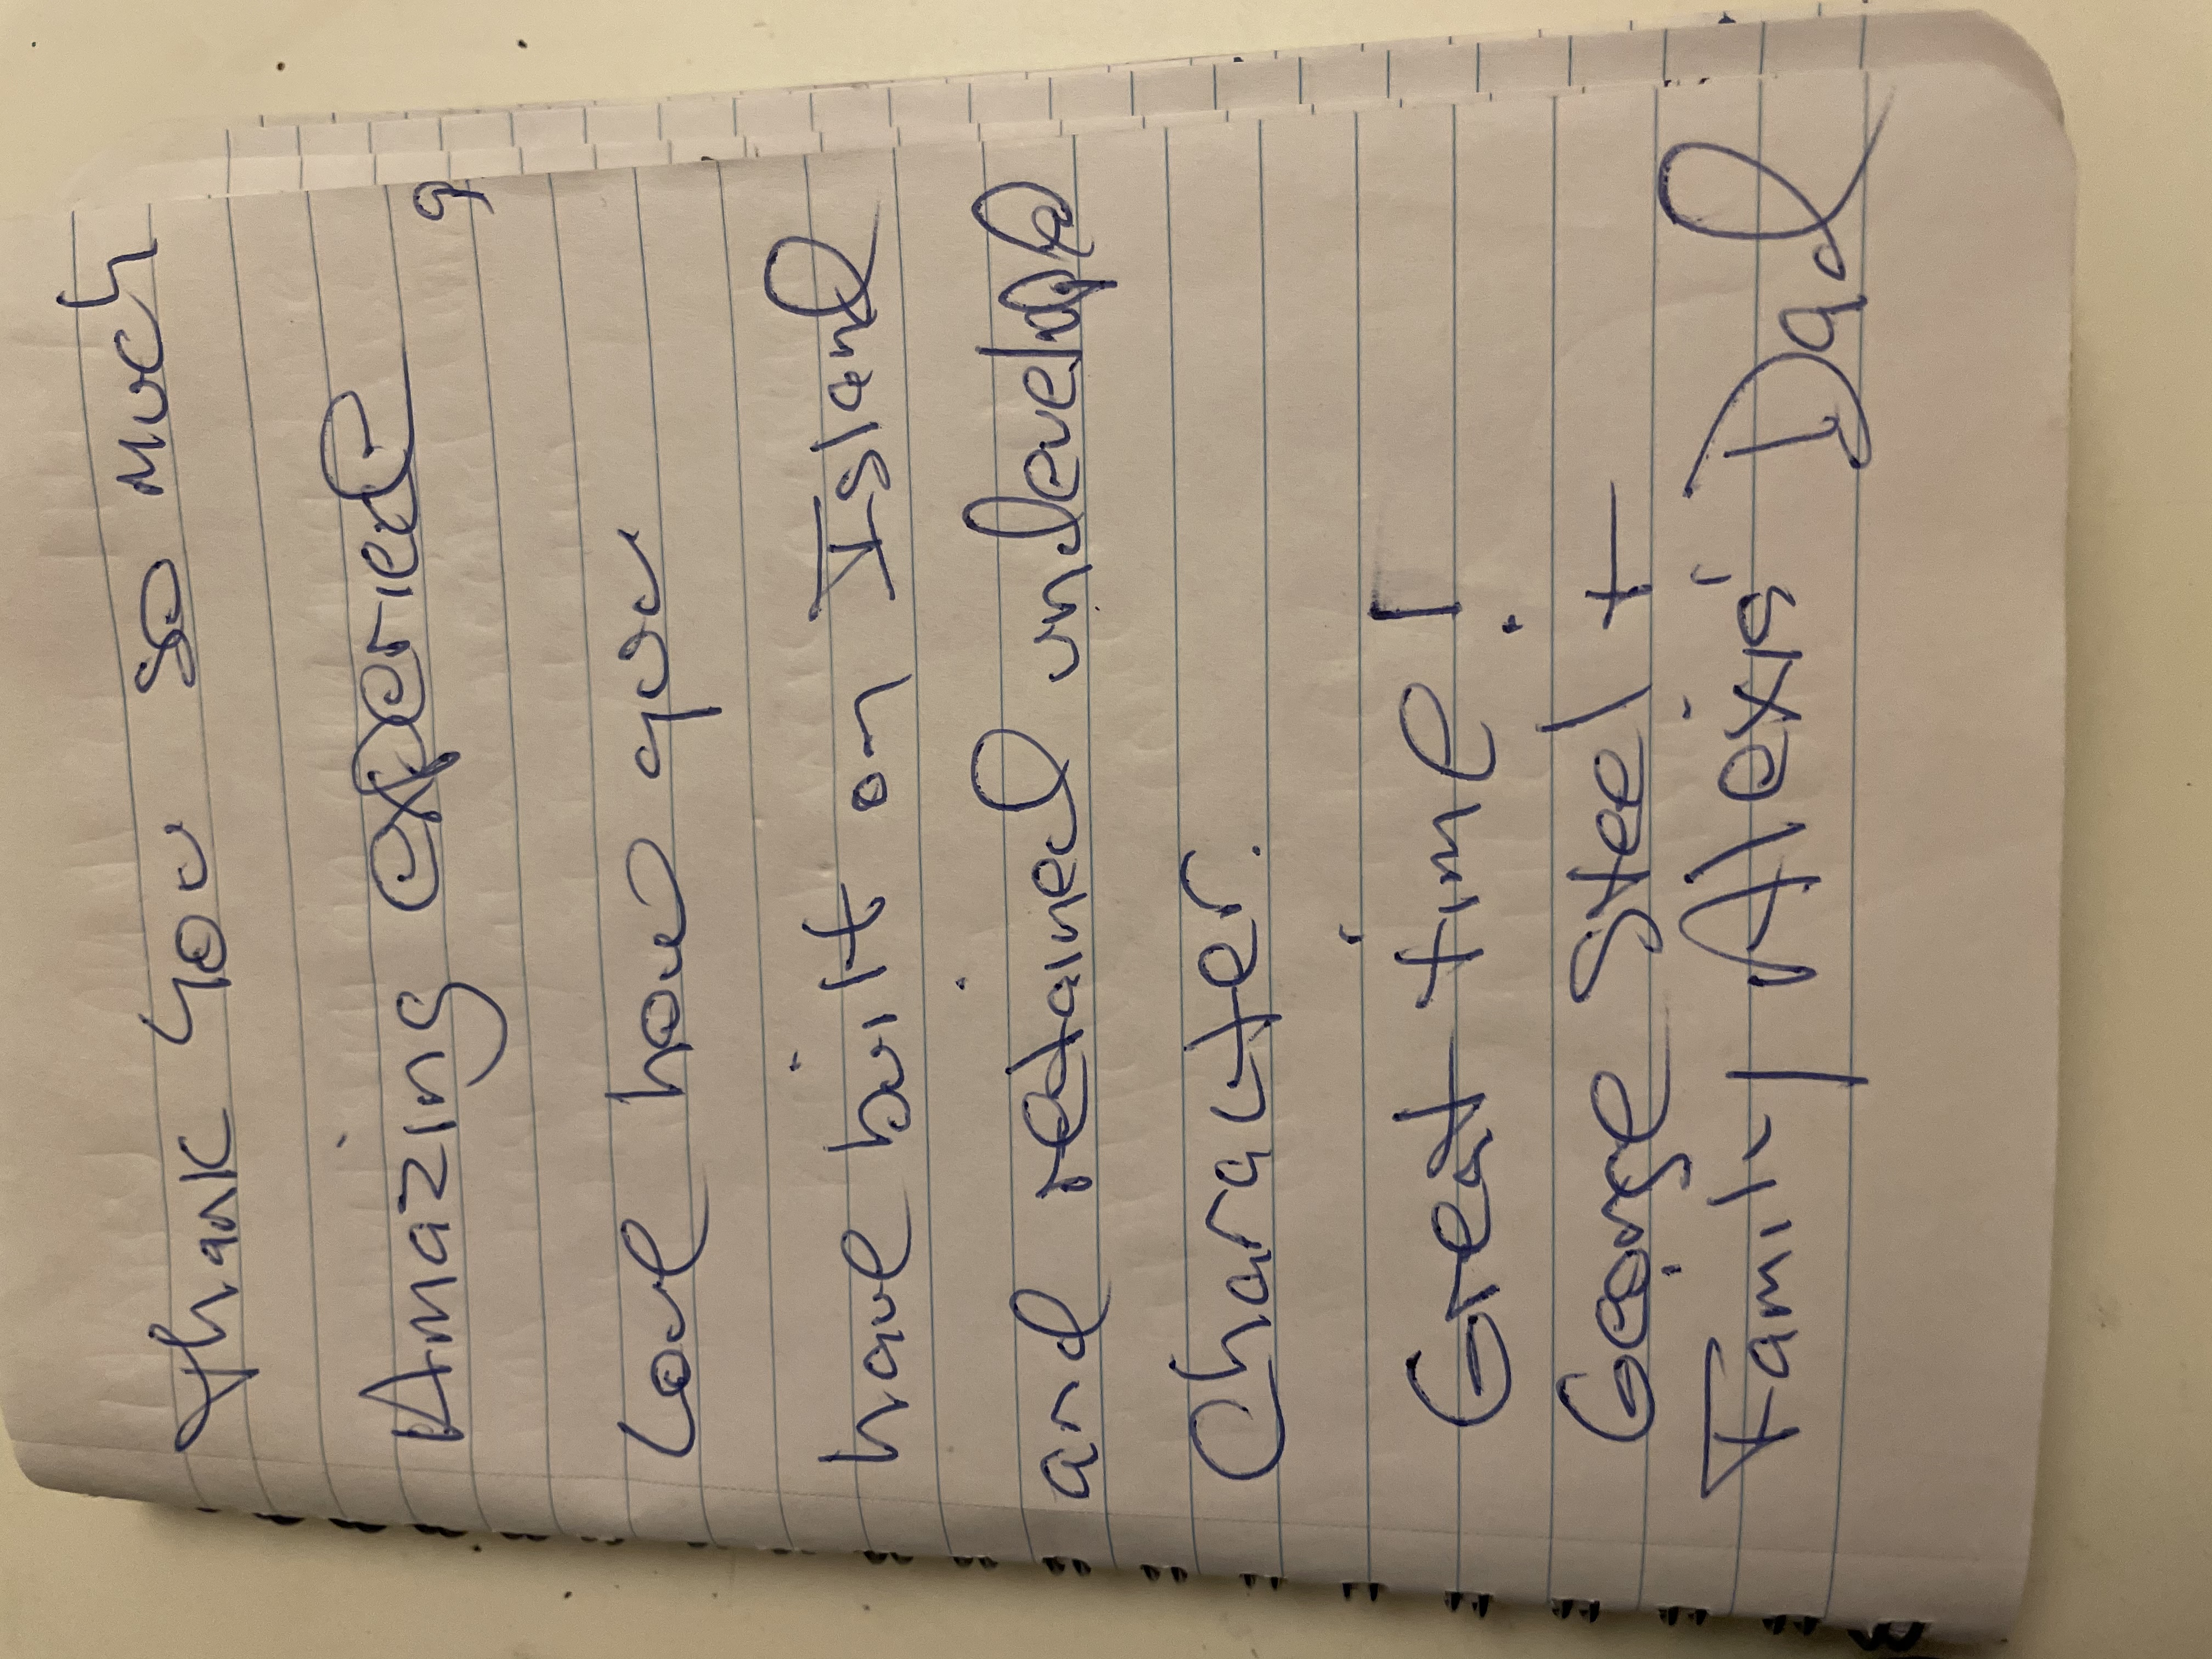 Thank you so much
Amazing experiece,
Love how you
have built on Island
and retained undeveloped
Character.
Great time!
George Steel +
Family Alexis' Dad